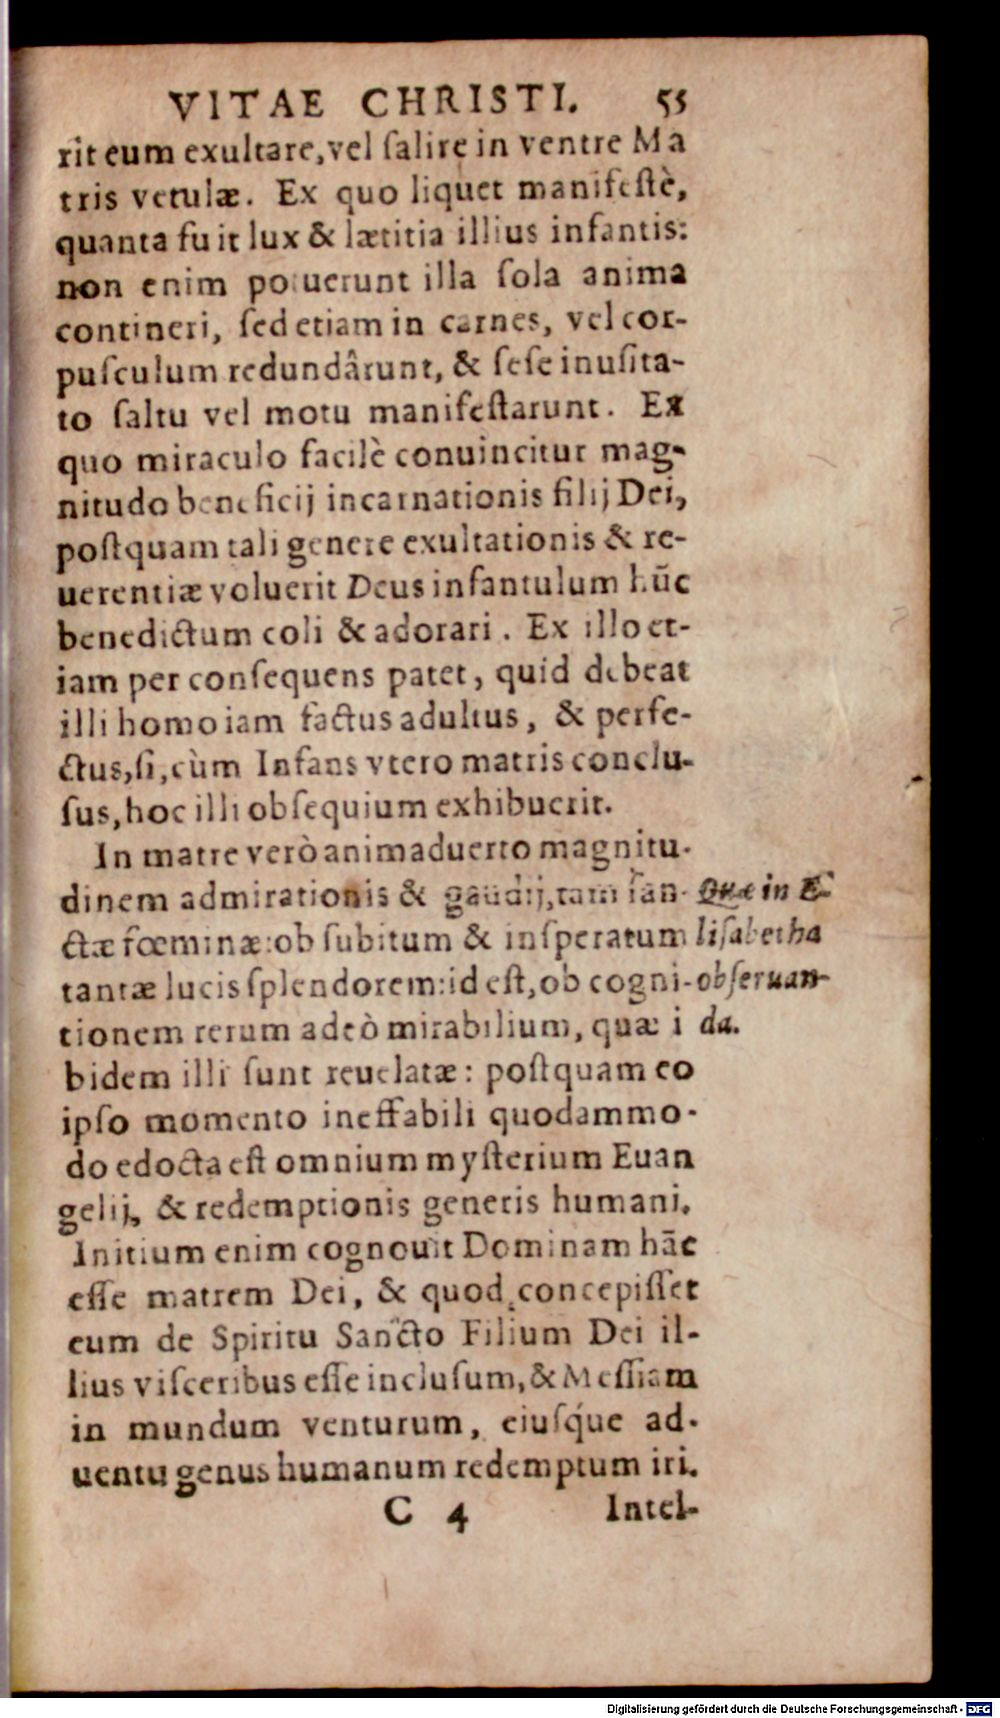 VITAE CHRISTI. 55
rit eum exultare, vel ſalire in ventre Ma
tris vetulæ. Ex quo liquet manifeſtè,
quanta fuit lux & lætitia illius infantis:
non enim potuerunt illa ſola anima
contineri, ſed etiam in carnes, vel cor-
puſculum redundârunt, & ſeſe inuſita-
to ſaltu vel motu manifeſtarunt. Ex
quo miraculo facilè conuincitur mag-
nitudo beneficij incarnationis filij Dei,
poſtquam tali genere exultationis & re-
uerentiæ voluerit Deus infantulum hūc
benedictum coli & adorari. Ex illo et-
iam per conſequens patet, quid debeat
illi homo iam factus adultus, & perfe-
ctus, ſi, cùm Infans vtero matris conclu-
ſus, hoc illi obſequium exhibuerit.
In matre verò animaduerto magnitu-
dinem admirationis & gaudij, tam ſan-
ctæ fœminæ: ob ſubitum & inſperatum
tantæ lucis ſplendorem: id eſt, ob cogni-
tionem rerum adeò mirabilium, quæ i
bidem illi ſunt reuelatæ: poſtquam eo
ipſo momento ineffabili quodammo-
do edocta eſt omnium myſterium Euan
gelij, & redemptionis generis humani.
Initium enim cognouit Dominam hāc
eſſe matrem Dei, & quod concepiſſet
eum de Spiritu Sancto Filium Dei il-
lius viſceribus eſſe incluſum, & Meſſiam
in mundum venturum, eiuſq́ue ad-
uentu genus humanum redemptum iri.
C 4 Intel-
Quæ in E-
liſabetha
obſeruan-
da.
Digitalisierung gefördert durch die Deutsche Forschungsgemeinschaft - DFG